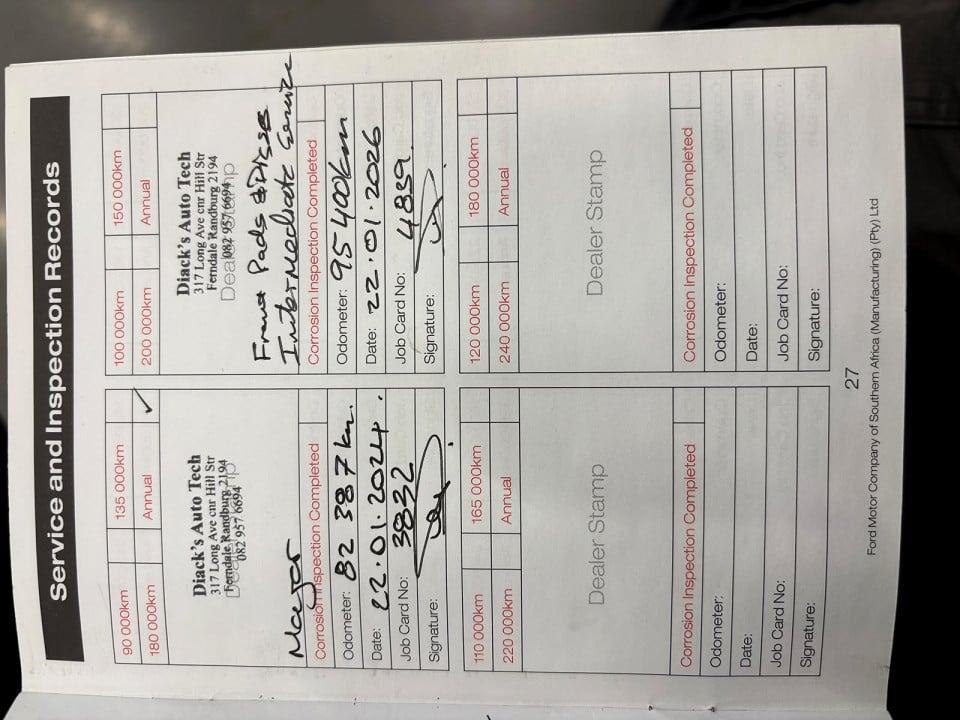 Service and Inspection Records
90 000km 135 000km
180 000km Annual ✓
Diack's Auto Tech
317 Long Ave cnr Hill Str
Ferndale Randburg 2194
082 957 6694
Dealer Stamp
Major
Corrosion Inspection Completed
Odometer: 82 387 km.
Date: 22.01.2024.
Job Card No: 3832
Signature:
100 000km 150 000km
200 000km Annual
Diack's Auto Tech
317 Long Ave cnr Hill Str
Ferndale Randburg 2194
082 957 6694
Dealer Stamp
Front Pads & Discs
Intermediate Service
Corrosion Inspection Completed
Odometer: 95 400km
Date: 22.01.2026
Job Card No: 4839.
Signature:
110 000km 165 000km
220 000km Annual
Dealer Stamp
Corrosion Inspection Completed
Odometer:
Date:
Job Card No:
Signature:
120 000km 180 000km
240 000km Annual
Dealer Stamp
Corrosion Inspection Completed
Odometer:
Date:
Job Card No:
Signature:
27
Ford Motor Company of Southern Africa (Manufacturing) (Pty) Ltd